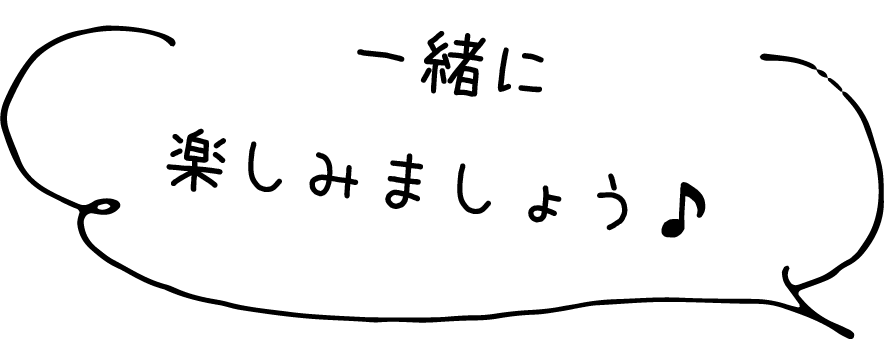 一緒に
楽しみましょう♪